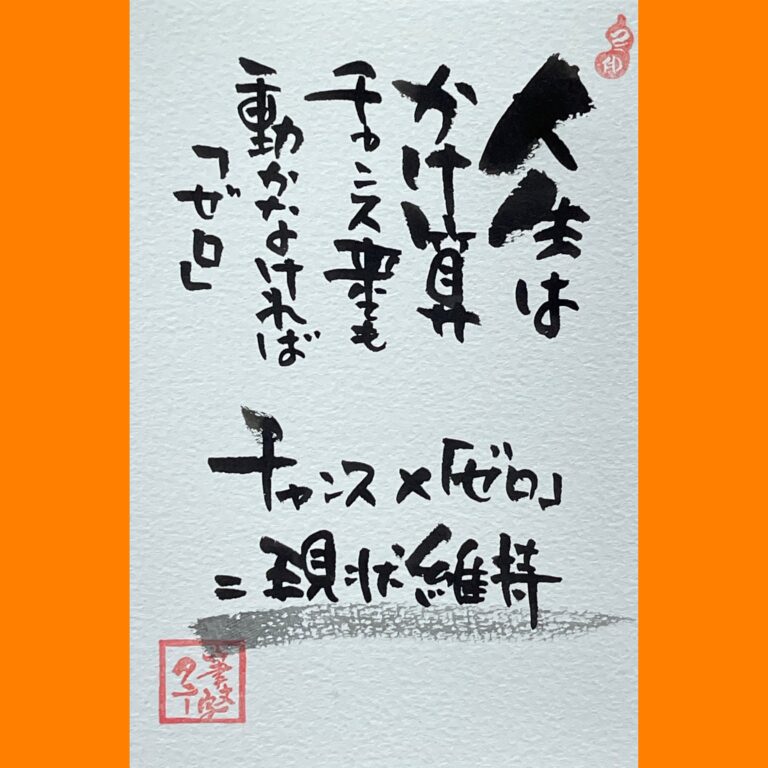 人生は
かけ算
チャンス来ても
動かなければ
「ゼロ」
チャンス×「ゼロ」
＝現状維持
筆文字
タニー